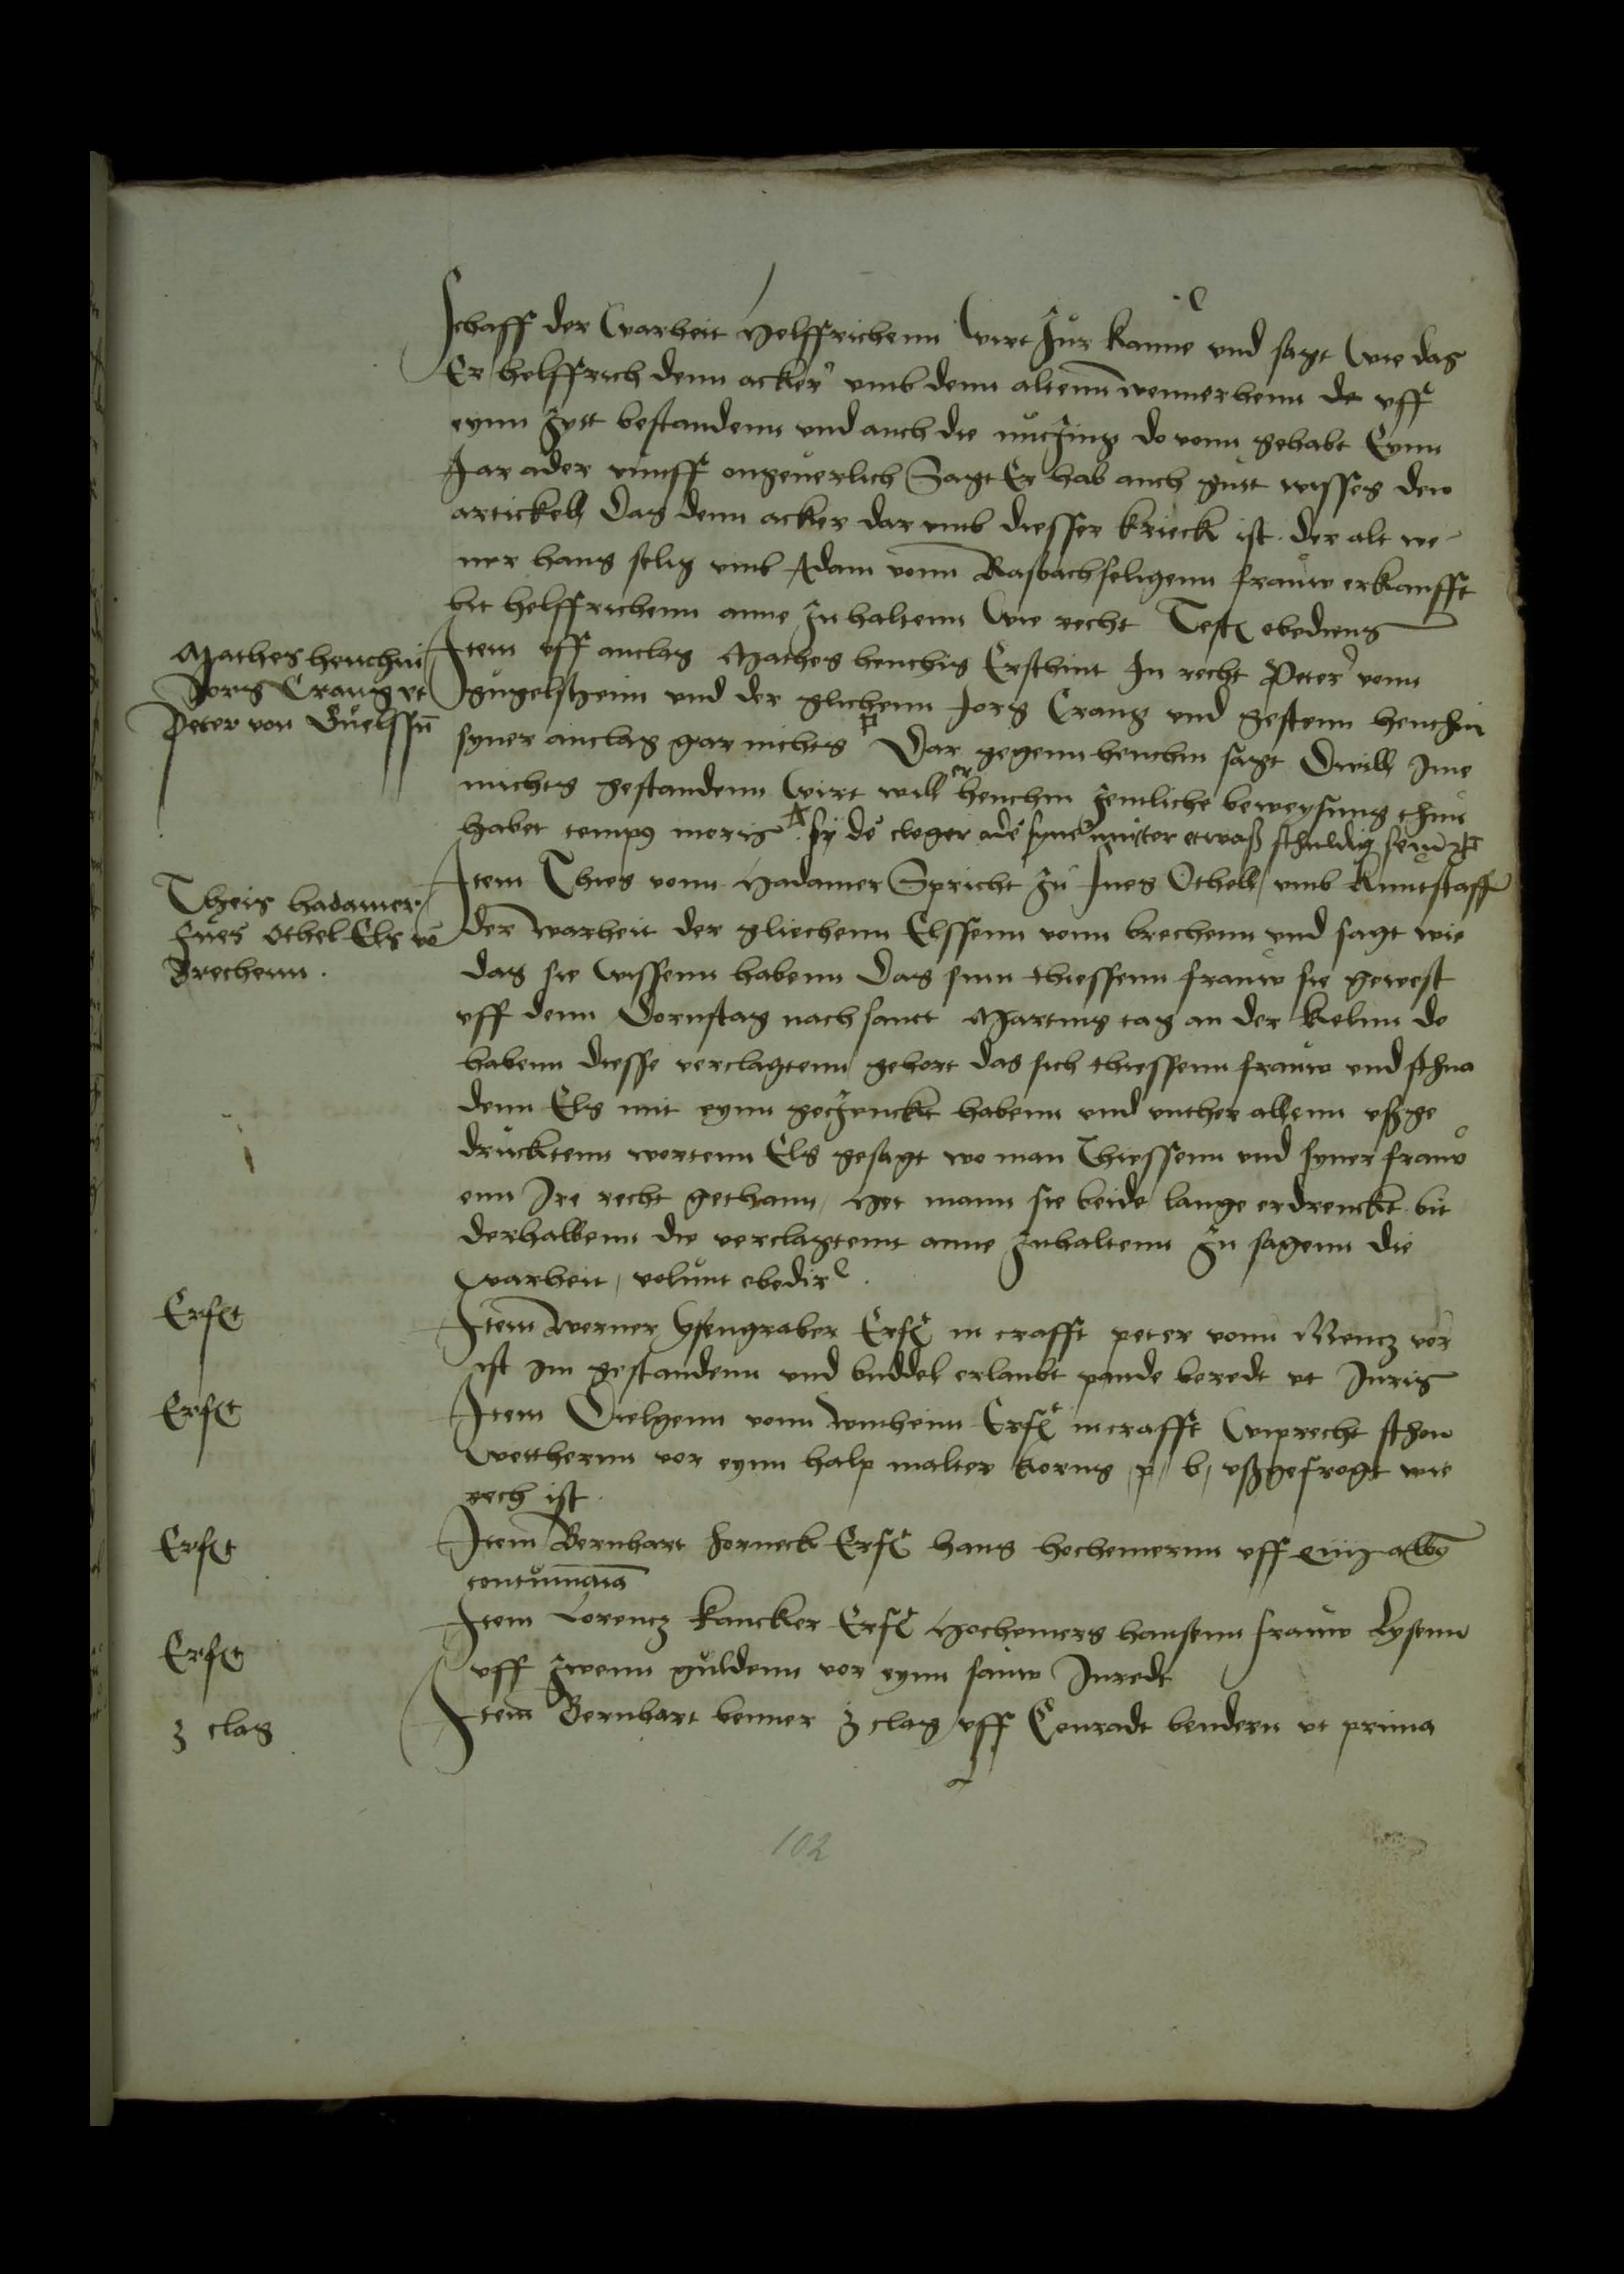 schafft der warheit Helffrichenn wirt zur kanne und sagt wie das
Er helffrich denn acker umb denn altenn wennerhenn de uff
eynn zytt bestandenn und auch die nuczung do vonn gehabt Eynn
Jar ader vunff ongeuerlich Sagt Er hab auch gut wisses den
artickell Das denn acker dar umb diesser krieck ist der alt we
ner hans selig umb Adam vonn Rasbach seligenn frauw erkaufft
bit helffrichenn anne zu haltenn wie recht Test obediens
Mathes henchin
Jorg Crang et
Peter von
Item uff anclag Mathes henchis Erschint In recht Peter vonn
gugelsheim und der glichenn Jorg Crang und gestenn henchin
syner anclag gar nichts Dar gegenn henchin sagt Dwill Ime
nichts gestandenn wirt will er henchin zemliche beweysung thun
habet tempus moris sy der cleger ader syner mutter etwaß schuldig
Theis hadamer
Ines Othel Els vo
Brechenn
Item Thies vonn Hadamer Spricht zu Ines Othell umb Kuntschafft
der warheit der gliechenn Elssenn vonn brechenn und sagt wie
das sie wissenn habenn Das sinn thiessenn frauw sie gewest
uff denn Dornstag nach sanct Martins tag an der kelnn do
habenn diesse verclagtenn gehort das sich thiessenn frauw und schna
denn Els mit eynn geczenckt habenn und unther allenn ußge
drucktenn wortenn Els gesagt wo man Thiessenn und syner frauw
enn Ire recht gethann Het mann sie beide lange erdrenckt bit
derhalbenn die verclagtenn anne zuhaltenn zu sagenn die
warheit volunt obedire
Erfelt
Item Werner ysengraber Erfelt in crafft peter vonn Mencz vor
ist im gestandenn und buddel erlaubt pande beredt ut Juris
Erfelt
Item Dielgenn vonn Winheim Erfelt in crafft wiprecht schon
wetthernn vor eynn halp malter korns p b ußgefrogt wie
rech ist
Erfelt
Item Bernhart Horneck Erfelt hans hochemernn uff albus
contumaciam
Erfelt
Item Lorencz kancker Erfelt Hochemers hansenn frauw Lysenn
uff zwenn guldenn vor eynn sauw Inredt
3 clag
Item Bernhart benner 3 clag uff Conradt bendern ut prima
102